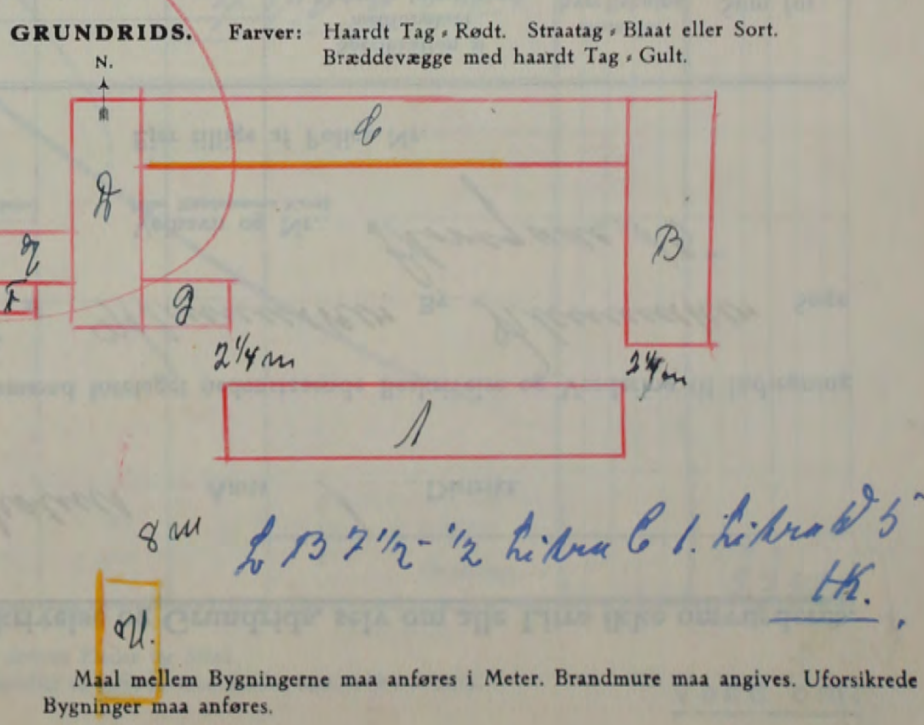 GRUNDRIDS. Farver: Haardt Tag = Rødt. Straatag = Blaat eller Sort.
Bræddevægge med haardt Tag = Gult.
N.
C
D
B
g
2 1/4 m
2 1/4 m
A
8 m
L B 7 1/2 - 1/2 Litra C 1. Litra D 5
HK.
Maal mellem Bygningerne maa anføres i Meter. Brandmure maa angives. Uforsikrede
Bygninger maa anføres.